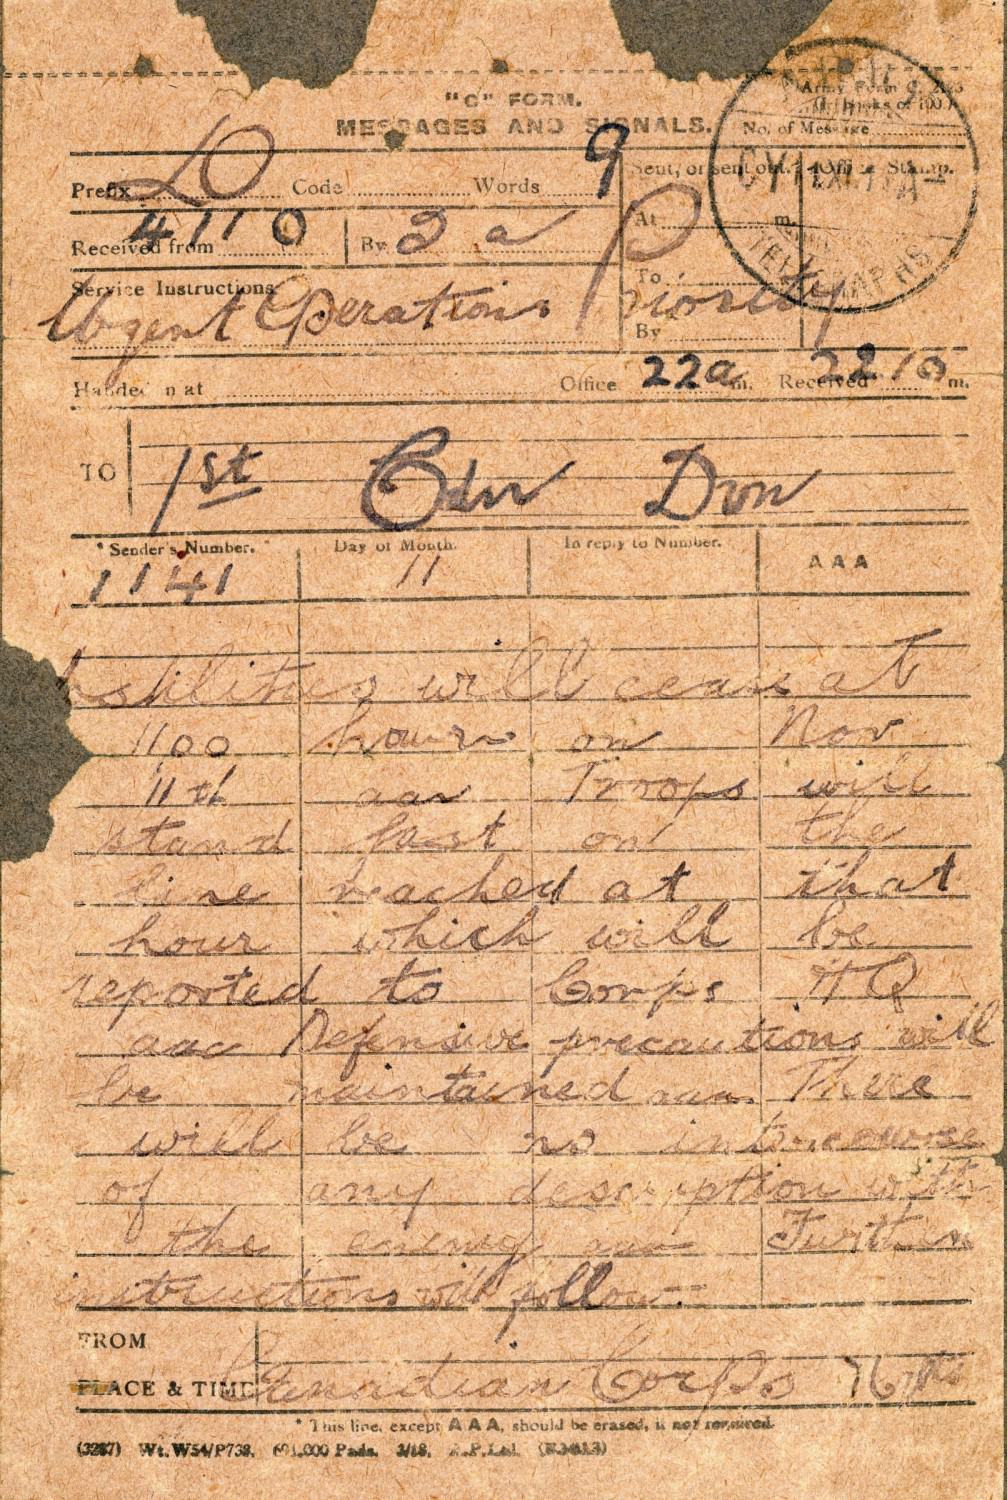 "C" FORM.
MESSAGES AND SIGNALS.
Army Form C. 2123
(In books of 100.)
No. of Message
Prefix Code Words 9
Sent, or sent out. Office Stamp.
Received from 4110 By 2 a
At m.
To
By
Service Instructions
Urgent Operations Priority
Handed in at Office 22a m. Received 2210 m.
TO 1st Cdn Dvn
* Sender's Number. Day of Month. In reply to Number. AAA
1141 11
hostilities will cease at
1100 hours on Nov
11th aaa Troops will
stand fast on the
line reached at that
hour which will be
reported to Corps HQ
aaa Defensive precautions will
be maintained aaa There
will be no intercourse
of any description with
the enemy aaa Further
instructions will follow.
FROM
PLACE & TIME Canadian Corps
* This line, except AAA, should be erased, if not required.
(3287) Wt. W54/P738. 691,000 Pads. 3/18.